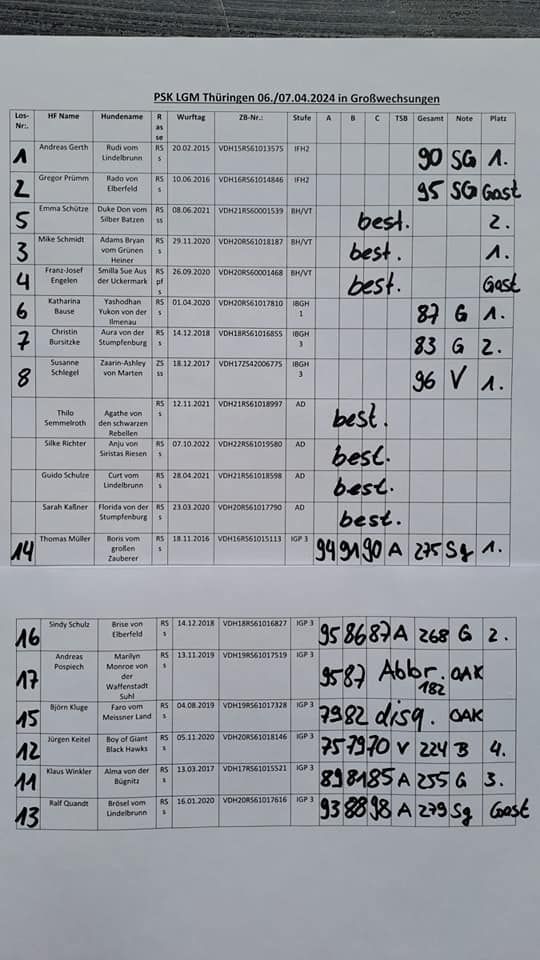 PSK LGM Thüringen 06./07.04.2024 in Großwechsungen
Los-Nr:. HF Name Hundename Rasse Wurftag ZB-Nr.: Stufe A B C TSB Gesamt Note Platz
1 Andreas Gerth Rudi vom Lindelbrunn RSs 20.02.2015 VDH15RS61013575 IFH2 90 SG 1.
2 Gregor Prümm Rado von Elberfeld RSs 10.06.2016 VDH16RS61014846 IFH2 95 SG Gast
5 Emma Schütze Duke Don vom Silber Batzen RSss 08.06.2021 VDH21RS60001539 BH/VT best. 2.
3 Mike Schmidt Adams Bryan vom Grünen Heiner RSs 29.11.2020 VDH20RS61018187 BH/VT best. 1.
4 Franz-Josef Engelen Smilla Sue Aus der Uckermark RSpfs 26.09.2020 VDH20RS60001468 BH/VT best. Gast
6 Katharina Bause Yashodhan Yukon von der Ilmenau RSs 01.04.2020 VDH20RS61017810 IBGH 1 87 G 1.
7 Christin Bursitzke Aura von der Stumpfenburg RSs 14.12.2018 VDH18RS61016855 IBGH 3 83 G 2.
8 Susanne Schlegel Zaarin-Ashley von Marten ZSss 18.12.2017 VDH17ZS42006775 IBGH 3 96 V 1.
Thilo Semmelroth Agathe von den schwarzen Rebellen RSs 12.11.2021 VDH21RS61018997 AD best.
Silke Richter Anju von Siristas Riesen RSs 07.10.2022 VDH22RS61019580 AD best.
Guido Schulze Curt vom Lindelbrunn RSs 28.04.2021 VDH21RS61018598 AD best.
Sarah Kaßner Florida von der Stumpfenburg RSs 23.03.2020 VDH20RS61017790 AD best.
14 Thomas Müller Boris vom großen Zauberer RSs 18.11.2016 VDH16RS61015113 IGP 3 94 91 90 A 275 Sg 1.
16 Sindy Schulz Brise von Elberfeld RSs 14.12.2018 VDH18RS61016827 IGP 3 95 86 87 A 268 G 2.
17 Andreas Pospiech Marilyn Monroe von der Waffenstadt Suhl RSs 13.11.2019 VDH19RS61017519 IGP 3 95 87 Abbr. 182 OAK
15 Björn Kluge Faro vom Meissner Land RSs 04.08.2019 VDH19RS61017328 IGP 3 79 82 disq. OAK
12 Jürgen Keitel Boy of Giant Black Hawks RSs 05.11.2020 VDH20RS61018146 IGP 3 75 79 70 V 224 B 4.
11 Klaus Winkler Alma von der Bügnitz RSs 13.03.2017 VDH17RS61015521 IGP 3 89 81 85 A 255 G 3.
13 Ralf Quandt Brösel vom Lindelbrunn RSs 16.01.2020 VDH20RS61017616 IGP 3 93 88 98 A 279 Sg Gast